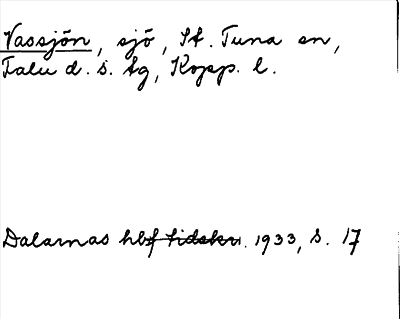 Vassjön, sjö, St. Tuna sn,
Falu d. s. tg, Kopp. l.
Dalarnas hbf tidskr. 1933, s. 17